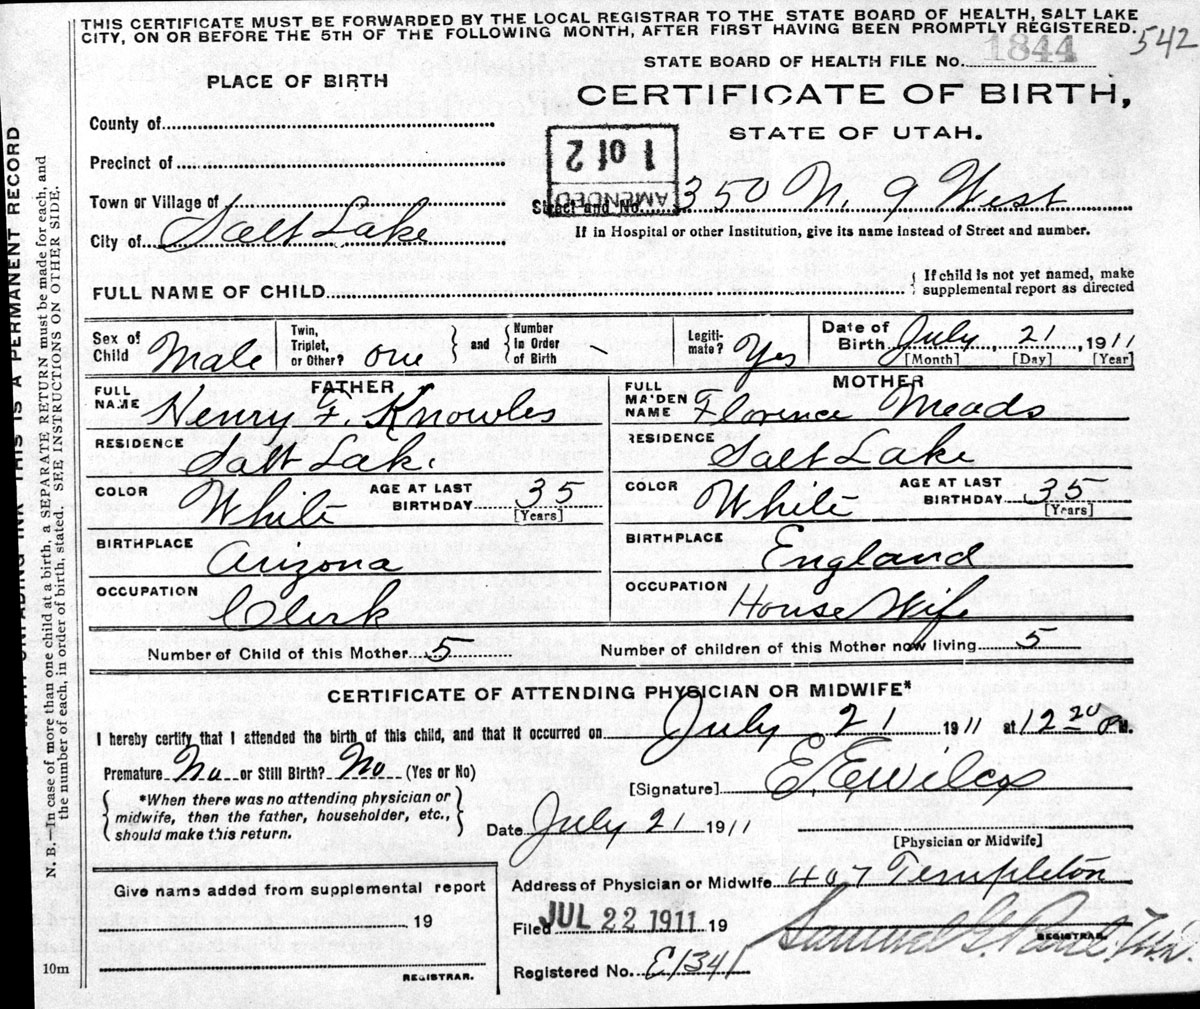 THIS CERTIFICATE MUST BE FORWARDED BY THE LOCAL REGISTRAR TO THE STATE BOARD OF HEALTH, SALT LAKE
CITY, ON OR BEFORE THE 5TH OF THE FOLLOWING MONTH, AFTER FIRST HAVING BEEN PROMPTLY REGISTERED.
542
STATE BOARD OF HEALTH FILE No. 1844
PLACE OF BIRTH
CERTIFICATE OF BIRTH,
STATE OF UTAH.
County of
Precinct of
1 of 2
AMENDED
Town or Village of
Street and No. 350 N. 9 West
City of Salt Lake
If in Hospital or other Institution, give its name instead of Street and number.
FULL NAME OF CHILD
If child is not yet named, make
supplemental report as directed
Sex of Child Male
Twin, Triplet, or Other? one
and
Number in Order of Birth
Legiti-mate? Yes
Date of Birth July 21, 1911
[Month] [Day] [Year]
FATHER
FULL NAME Henry F. Knowles
MOTHER
FULL MAIDEN NAME Florence Meads
RESIDENCE Salt Lake
RESIDENCE Salt Lake
COLOR White
AGE AT LAST BIRTHDAY 35
[Years]
COLOR White
AGE AT LAST BIRTHDAY 35
[Years]
BIRTHPLACE Arizona
BIRTHPLACE England
OCCUPATION Clerk
OCCUPATION House Wife
Number of Child of this Mother 5
Number of children of this Mother now living 5
CERTIFICATE OF ATTENDING PHYSICIAN OR MIDWIFE*
I hereby certify that I attended the birth of this child, and that it occurred on July 21 1911 at 12 20 P M.
Premature No or Still Birth? No (Yes or No)
[Signature] E. E. Wilcox
*When there was no attending physician or
midwife, then the father, householder, etc.,
should make this return.
Date July 21 1911
[Physician or Midwife]
Give name added from supplemental report
19
REGISTRAR.
Address of Physician or Midwife 407 Templeton
Filed JUL 22 1911 19
Samuel G. Paul M.D.
REGISTRAR.
Registered No. E1341
10m
THIS IS A PERMANENT RECORD
N. B.—In case of more than one child at a birth, a SEPARATE RETURN must be made for each, and
the number of each, in order of birth, stated. SEE INSTRUCTIONS ON OTHER SIDE.